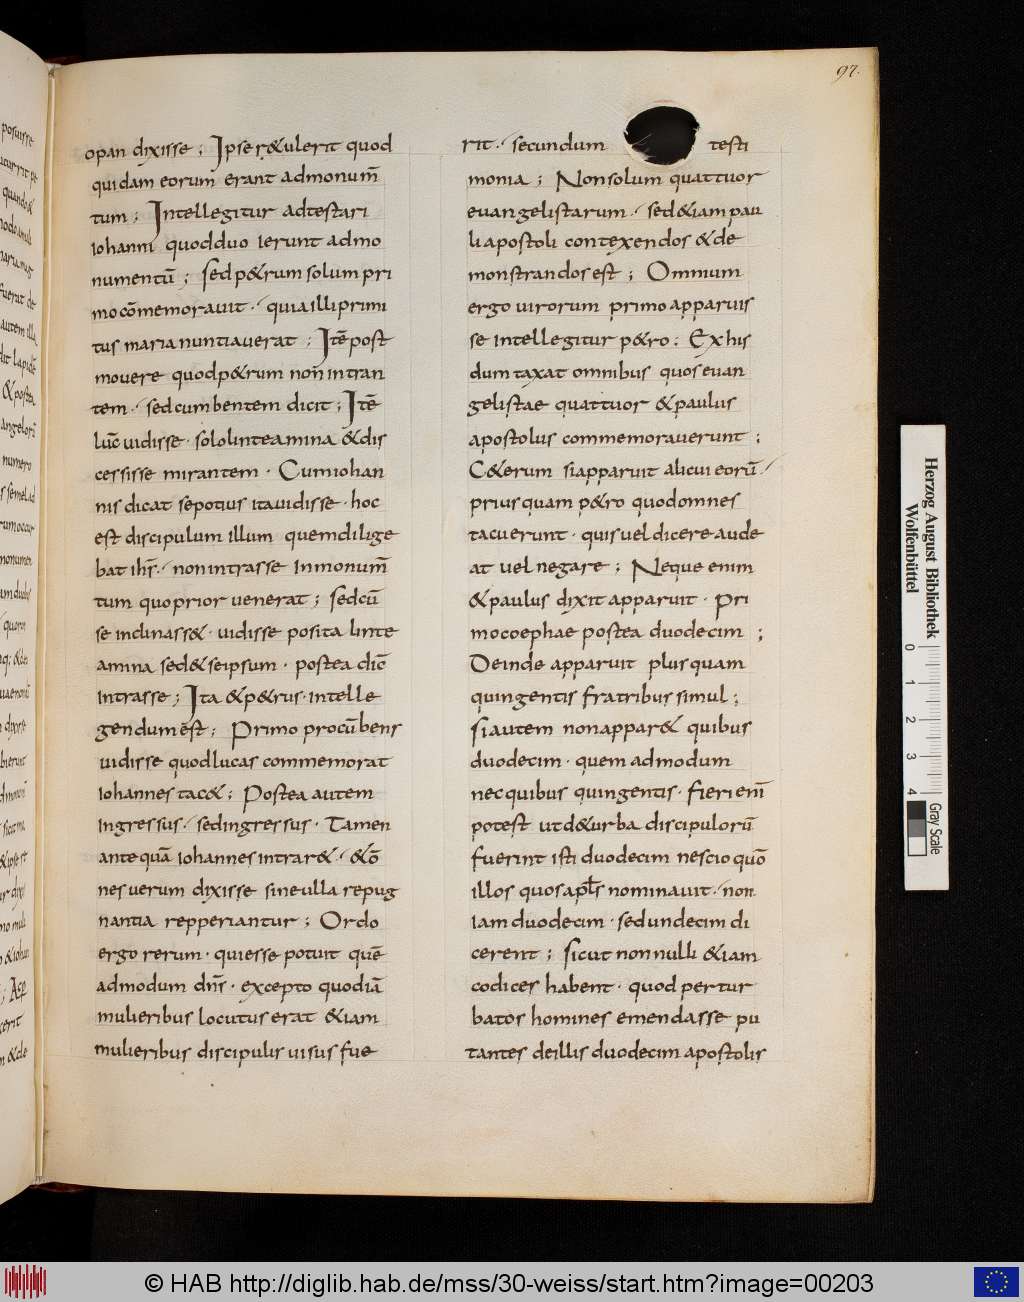 97.
opan dixisse ; Ipse r&ulerit quod
quidam eorum erant admonum̄
tum ; Intellegitur adtestari
iohanni quodduo ierunt admo
numentū ; sed p&rum solum pri
mo cōmemorauit · quia illi primi
tus maria nuntiauerat ; Itē post
mouere quod p&rum non intran
tem · sed cumbentem dicit ; Itē
luc̄ uidisse · sola linteamina &dis
cessisse mirantem · Cum iohan
nis dicat se potius ita uidisse · hoc
est discipulum illum quem dilige
bat ihs̄ · non intrasse in monum̄
tum quo prior uenerat ; sed cū
se inclinass& · uidisse posita linte
amina sed & se ipsum · postea dic̄
intrasse ; Ita & p&rus · intelle
gendum ēst ; Primo procūbens
uidisse quod lucas commemorat
iohannes tac& ; Postea autem
ingressus · sed ingressus · Tamen
antequā iohannes intrar& · & ō
nes uerum dixisse sine ulla repug
nantia repperiantur ; Ordo
ergo rerum · qui esse potuit quē
admodum dn̄s · excepto quod iā
mulieribus locutus erat &iam
mulieribus discipulis uisus fue
rit · secundum testi
monia ; Non solum quattuor
euangelistarum · sed &iam pau
li apostoli contexendos & de
monstrandos est ; Omnium
ergo uirorum primo apparuis
se intellegitur p&ro ; Ex his
dumtaxat omnibus quos euan
gelistae quattuor & paulus
apostolus commemorauerunt ;
C&erum si apparuit alicui eorū ·
prius quam p&ro quod omnes
tacuerunt · quis uel dicere aude
at uel negare ; Neque enim
& paulus dixit apparuit · Pri
mo coephae postea duodecim ;
Deinde apparuit plusquam
quingentis fratribus simul ;
si autem non appar& quibus
duodecim · quem admodum
nec quibus quingentis · fieri eni̅
potest ut d& urba discipulorū
fuerint isti duodecim nescio quō
illos quos apl̄s nominauit · non
iam duodecim · sed undecim di
cerent ; sicut nonnulli &iam
codices habent · quod pertur
batos homines emendasse pu
tantes de illis duodecim apostolis
Herzog August Bibliothek
Wolfenbüttel
0 1 2 3 4
Gray Scale
© HAB http://diglib.hab.de/mss/30-weiss/start.htm?image=00203